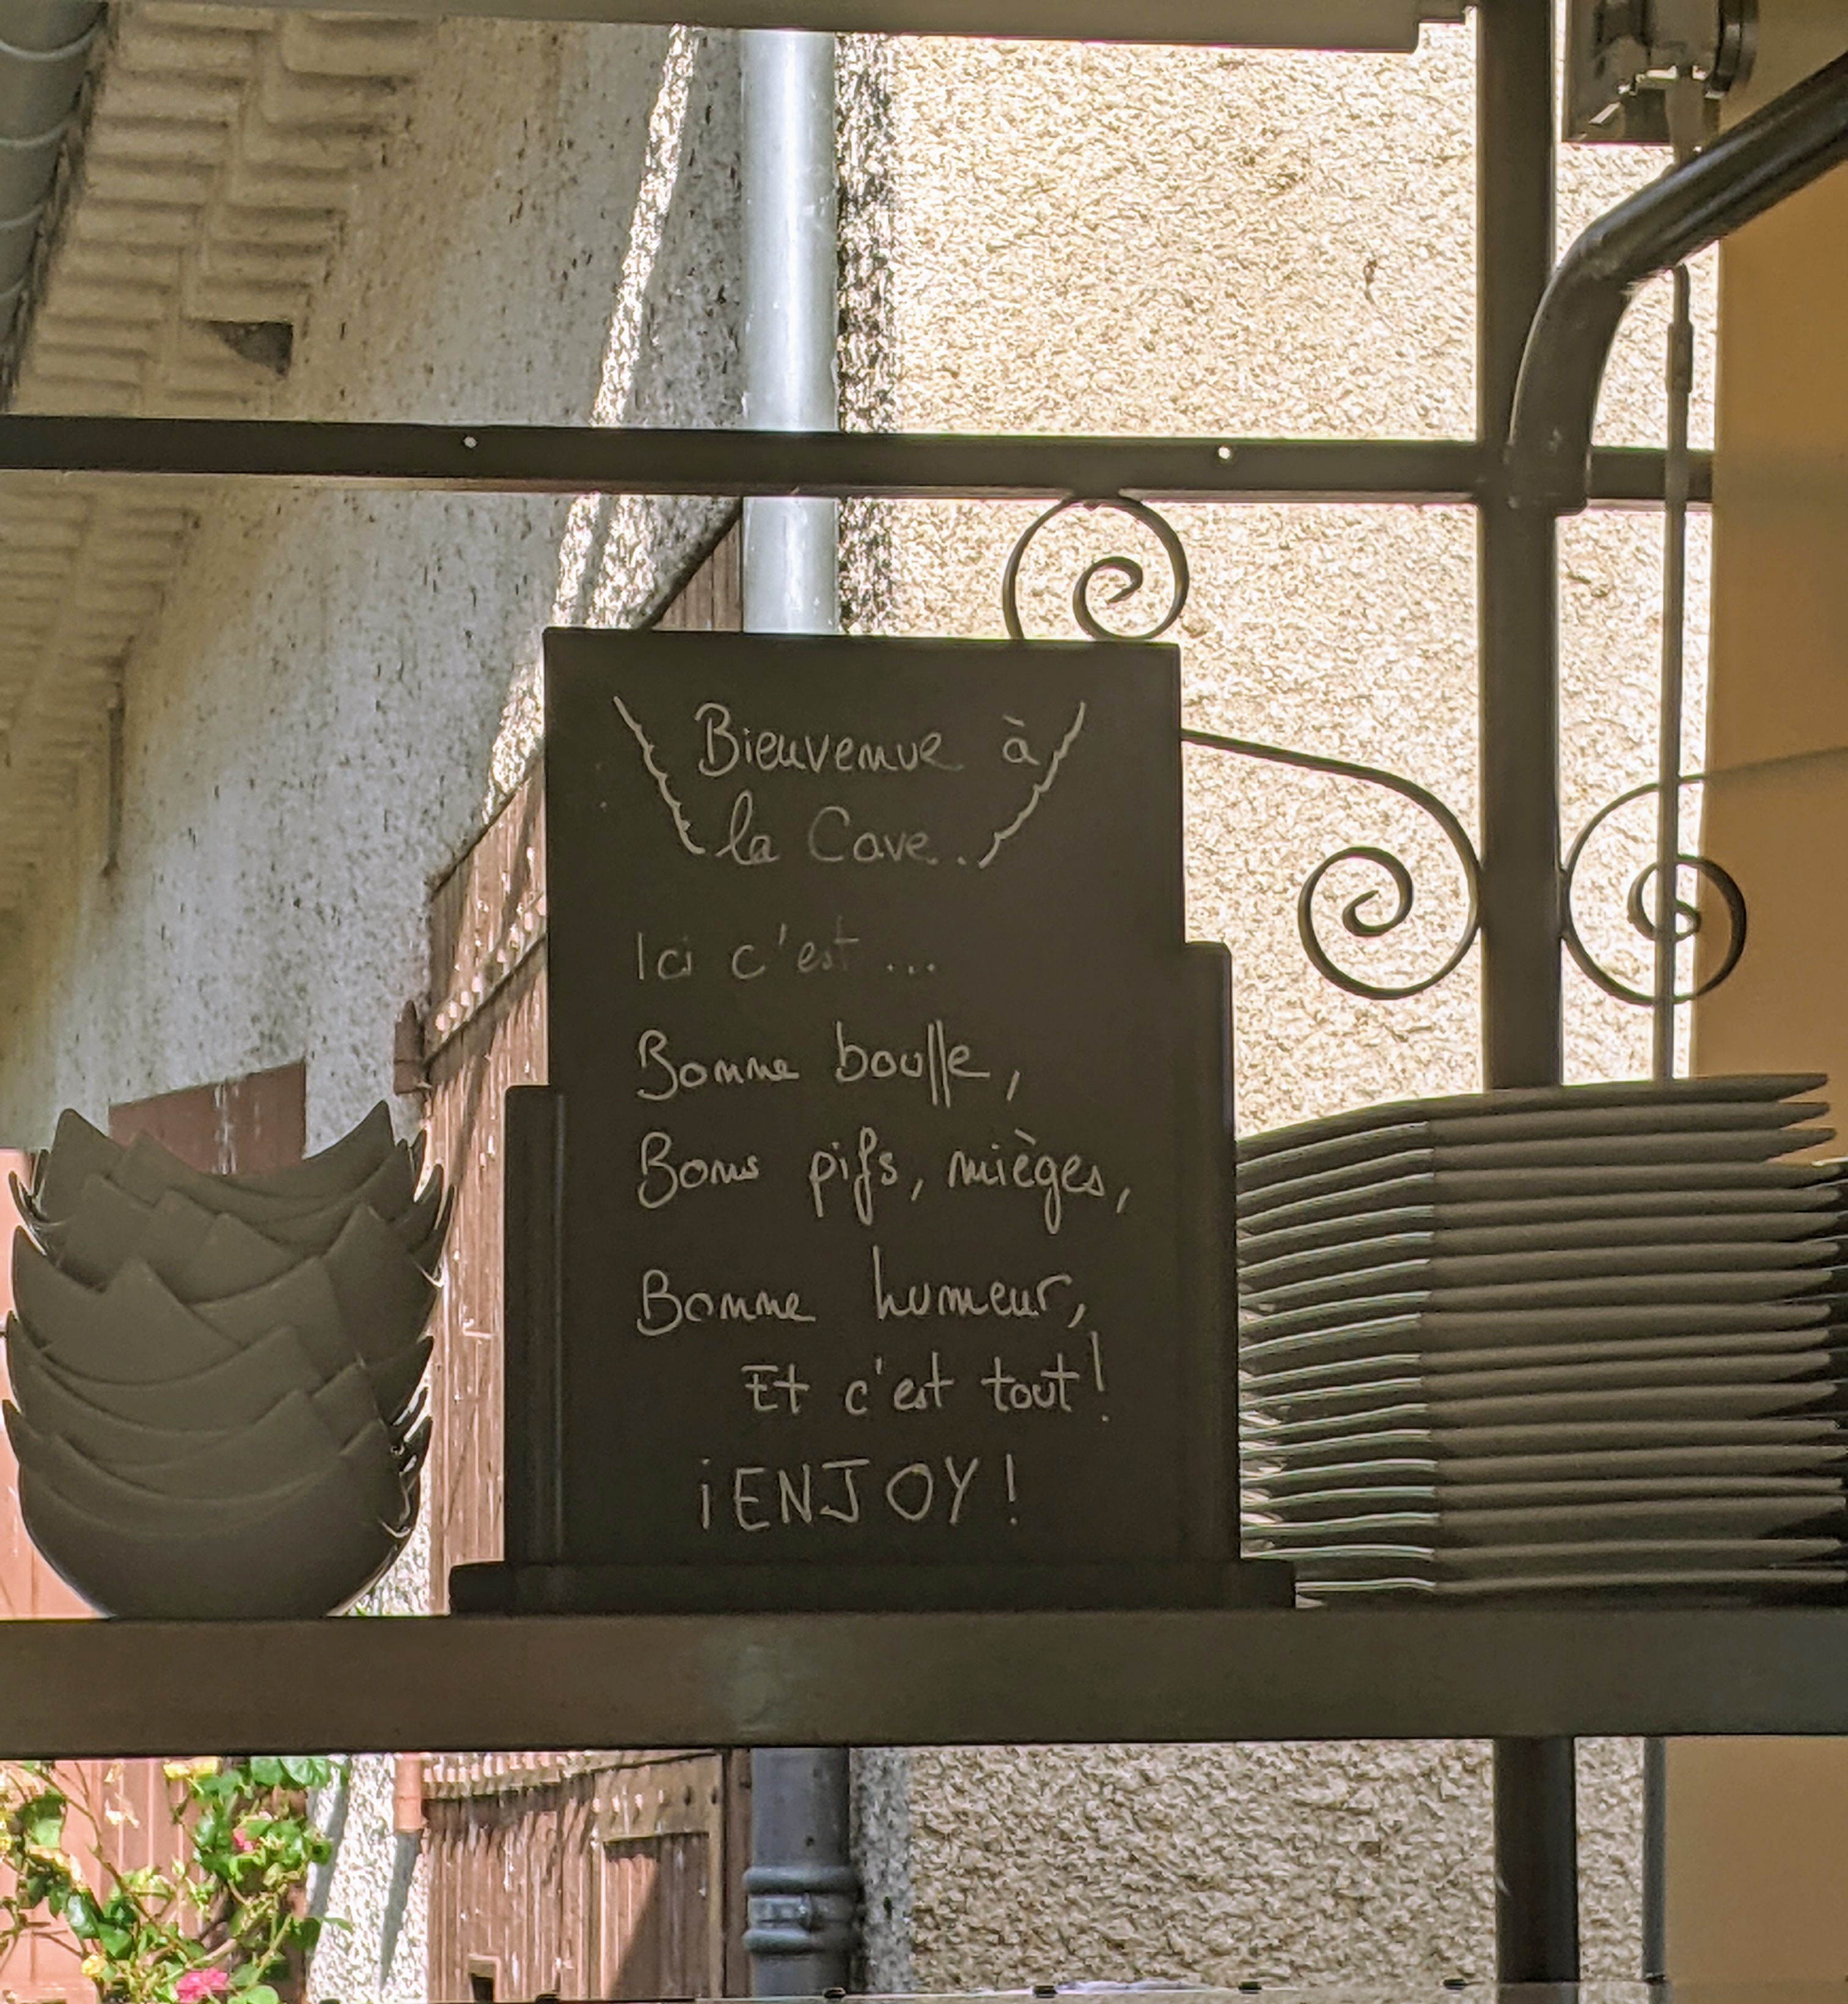 Bienvenue à
la Cave.
Ici c'est ...
Bonne bouffe,
Bons pifs, mièges,
Bonne humeur,
Et c'est tout!
¡ENJOY!